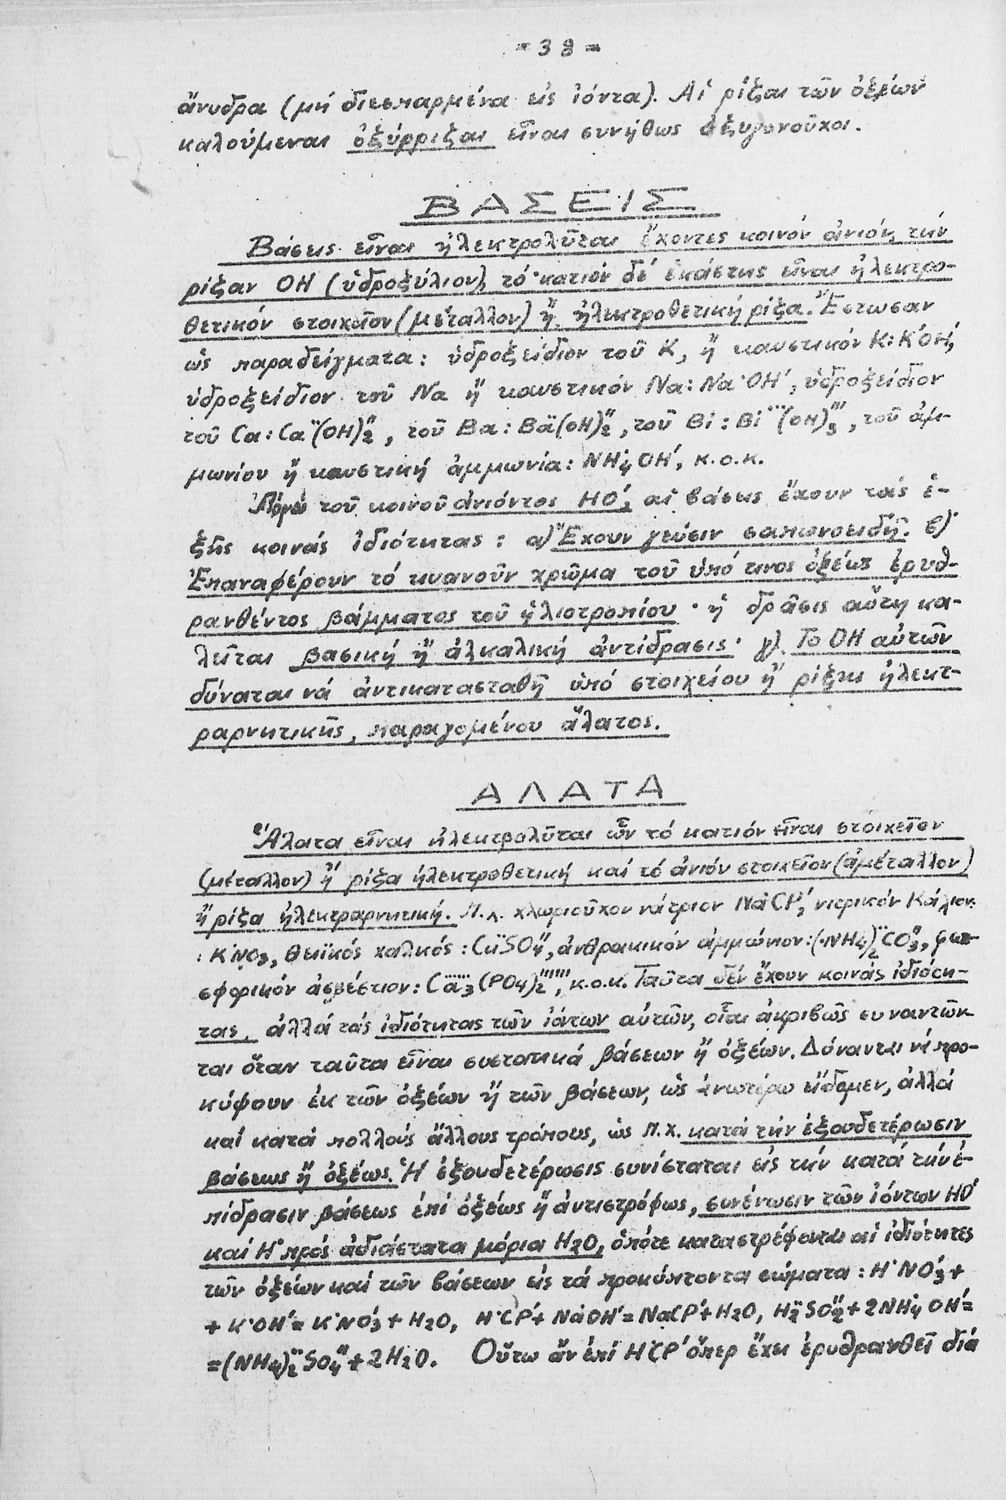 - 38 -
ἄνυδρα (μή διεσπαρμένα εἰς ἰόντα). Αἱ ρίζαι τῶν ὀξέων
καλούμεναι ὀξύρριζαι εἶναι συνήθως ὀξυγονοῦχοι.
ΒΑΣΕΙΣ
Βάσεις εἶναι ἠλεκτρολῦται ἔχοντες κοινόν ἀνιόν, τήν
ρίζαν ΟΗ (ὑδροξύλιον), τό κατιόν δέ ἑκάστης εἶναι ἠλεκτρο-
θετικόν στοιχεῖον (μέταλλον) ἤ ἠλεκτροθετική ρίζα. Ἔστωσαν
ὡς παραδείγματα: ὑδροξείδιον τοῦ Κ, ἤ καυστικόν Κ: Κ˙ΟΗ΄,
ὑδροξείδιον τοῦ Na ἤ καυστικόν Na: Na˙OH΄, ὑδροξείδιον
τοῦ Ca: Ca¨(OH)₂˝, τοῦ Ba: Ba¨(OH)₂˝, τοῦ Bi: Bi˙˙˙(OH)₃‴, τοῦ ἀμ-
μωνίου ἤ καυστική ἀμμωνία: NH₄˙OH΄, κ.ο.κ.
Λόγῳ τοῦ κοινοῦ ἀνιόντος ΗΟ΄, αἱ βάσεις ἔχουν τάς ἑ-
ξῆς κοινάς ἰδιότητας: α) Ἔχουν γεῦσιν σαπωνοειδῆ. β)
Ἐπαναφέρουν τό κυανοῦν χρῶμα τοῦ ὑπό τινος ὀξέως ἐρυθ-
ρανθέντος βάμματος τοῦ ἡλιοτροπίου · ἡ δρᾶσις αὕτη κα-
λεῖται βασική ἤ ἀλκαλική ἀντίδρασις · γ). Το ΟΗ αὐτῶν
δύναται νά ἀντικατασταθῇ ὑπό στοιχείου ἤ ρίζης ἠλεκτ-
ραρνητικῆς, παραγομένου ἅλατος.
ΑΛΑΤΑ
Ἅλατα εἶναι ἠλεκτρολῦται ὧν τό κατιόν εἶναι στοιχεῖον
(μέταλλον) ἤ ρίζα ἠλεκτροθετική καί τό ἀνιόν στοιχεῖον (ἀμέταλλον)
ἤ ρίζα ἠλεκτραρνητική. Π.χ. χλωριοῦχον νάτριον Na˙Cl΄, νιτρικόν Κάλιον
: K˙NO₃, θειϊκός χαλκός: Cu¨SO₄˝, ἀνθρακικόν ἀμμώνιον: (NH₄)₂¨CO₃˝, φωσ-
σφορικόν ἀσβέστιον: Ca₃˙˙˙˙˙˙(PO₄)₂‴‴, κ.ο.κ. Ταῦτα δέν ἔχουν κοινάς ἰδιότη-
τας, ἀλλά τάς ἰδιότητας τῶν ἰόντων αὐτῶν, οἷαι ἀκριβῶς συναντῶν-
ται ὅταν ταῦτα εἶναι συστατικά βάσεων ἤ ὀξέων. Δύνανται νά προ-
κύψουν ἐκ τῶν ὀξέων ἤ τῶν βάσεων, ὡς ἀνωτέρω εἴδομεν, ἀλλά
καί κατά πολλούς ἄλλους τρόπους, ὡς π.χ. κατά τήν ἐξουδετέρωσιν
βάσεως ἤ ὀξέως. Ἡ ἐξουδετέρωσις συνίσταται εἰς τήν κατά τήν ἐ-
πίδρασιν βάσεως ἐπί ὀξέως ἤ ἀντιστρόφως, συνένωσιν τῶν ἰόντων ΗΟ΄
καί Η˙ πρός ἀδιάστατα μόρια H₂O, ὁπότε καταστρέφονται αἱ ἰδιότητες
τῶν ὀξέων καί τῶν βάσεων εἰς τά προκύπτοντα σώματα: H˙NO₃΄ +
+ K˙OH΄ = K˙NO₃΄ + H₂O, H˙Cl΄ + Na˙OH΄ = Na˙Cl΄ + H₂O, H₂¨SO₄˝ + 2NH₄˙OH΄ =
= (NH₄)₂¨SO₄˝ + 2H₂O. Οὕτω ἄν ἐπί H˙Cl΄ ὅπερ ἔχει ἐρυθρανθεῖ διά